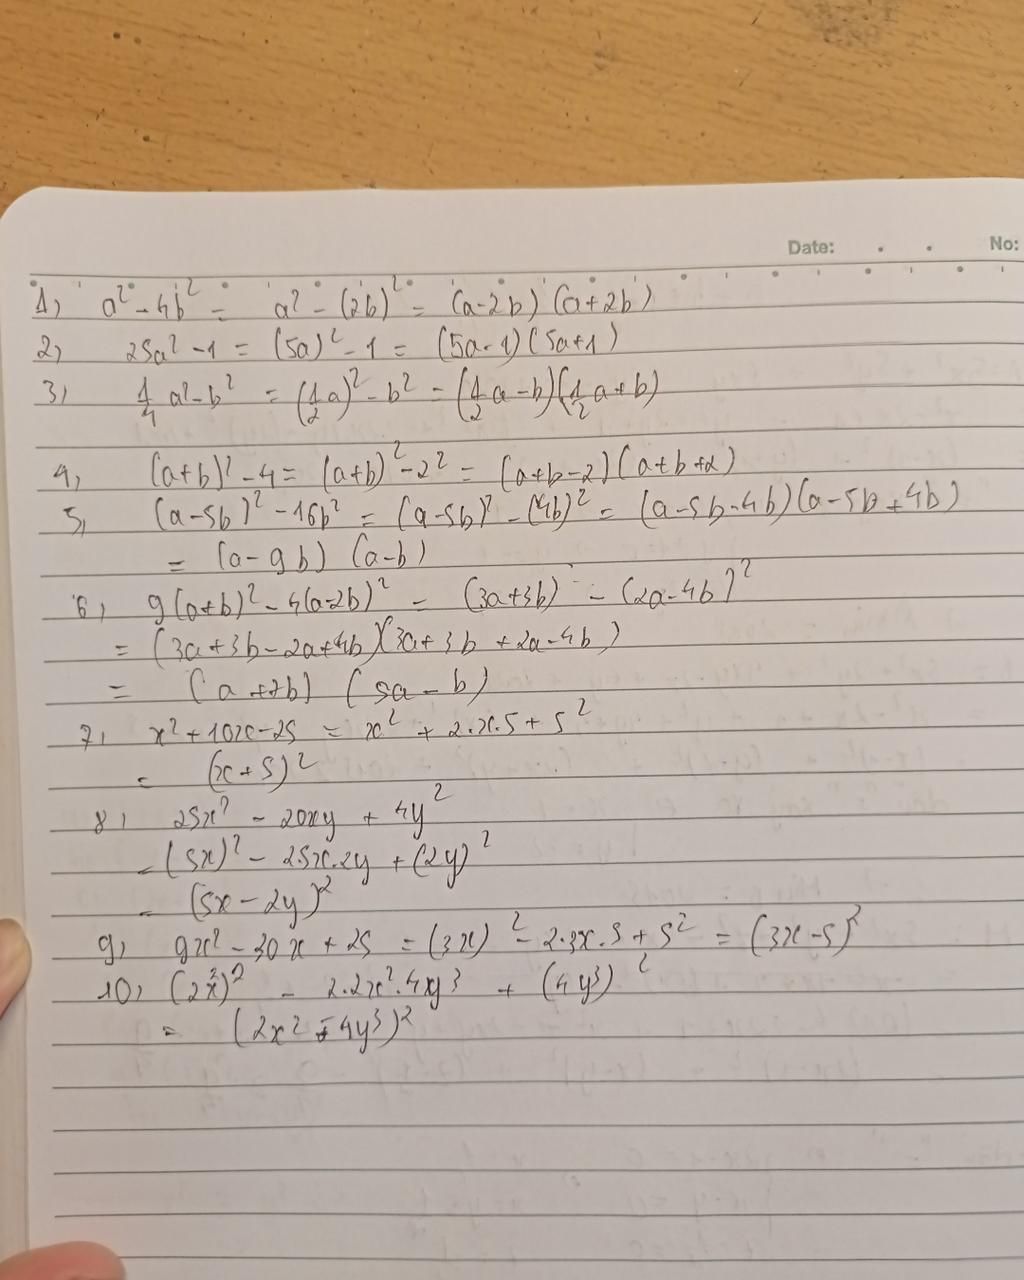 Date: . . No:
1) a² - 4b² = a² - (2b)² = (a-2b) (a+2b)
2) 25a² - 1 = (5a)² - 1 = (5a-1) (5a+1)
3) 1/4 a² - b² = (1/2 a)² - b² = (1/2 a - b)(1/2 a + b)
4) (a+b)² - 4 = (a+b)² - 2² = (a+b-2) (a+b+2)
5) (a-5b)² - 16b² = (a-5b)² - (4b)² = (a-5b-4b)(a-5b+4b)
= (a-9b) (a-b)
6) 9(a+b)² - 4(a-2b)² = (3a+3b) - (2a-4b)²
= (3a+3b-2a+4b)(3a+3b+2a-4b)
= (a+7b) (5a-b)
7) x² + 10x - 25 = x² + 2.x.5 + 5²
= (x+5)²
8) 25x² - 20xy + 4y²
= (5x)² - 25x.2y + (2y)²
= (5x-2y)²
9) 9x² - 30x + 25 = (3x)² - 2.3x.5 + 5² = (3x-5)²
10) (2x²)² - 2.2x².4xy³ + (4y³)²
= (2x² - 4y³)²